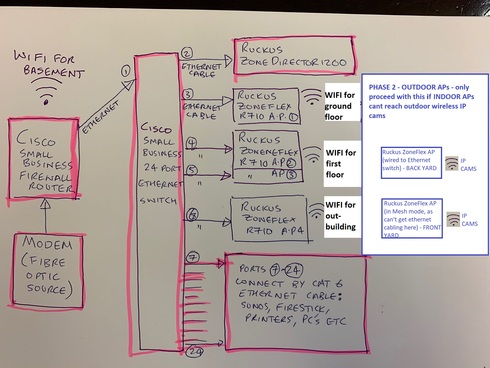 WIFI FOR
BASEMENT
①
ETHERNET
CISCO
SMALL
BUSINESS
FIREWALL
ROUTER
MODEM
(FIBRE
OPTIC
SOURCE)
CISCO
SMALL
BUSINESS
24 PORT
ETHERNET
SWITCH
②
ETHERNET
CABLE
RUCKUS
ZONE DIRECTOR 1200
③
ETHERNET
CABLE
RUCKUS
ZONEFLEX
R710 A.P. ①
WIFI for
ground
floor
④
"
⑤
"
RUCKUS
ZONENEFLEX
R710 AP②
" AP③
WIFI for
first
floor
⑥
"
RUCKUS
ZONEFLEX
R710 AP4
WIFI for
out-
building
⑦
㉔
PORTS ⑦-㉔
CONNECT BY CAT 6
ETHERNET CABLE:
SONOS, FIRESTICK,
PRINTERS, PC'S ETC
PHASE 2 - OUTDOOR APs - only
proceed with this if INDOOR APs
cant reach outdoor wireless IP
cams
Ruckus ZoneFlex AP
(wired to Ethernet
switch) - BACK YARD
IP
CAMS
Ruckus ZoneFlex AP
(in Mesh mode, as
can't get ethernet
cabling here) - FRONT
YARD
IP
CAMS